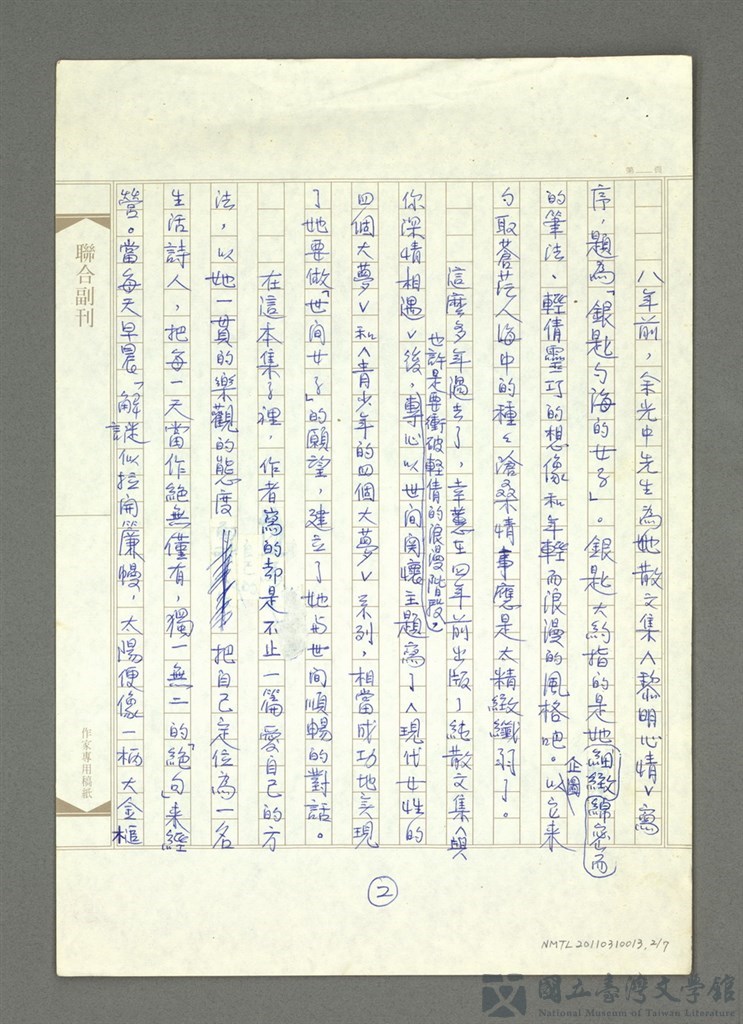 第 頁
八年前，余光中先生為她散文集＜黎明心情＞寫
序，題為「銀匙勺海的女子」。銀匙大約指的是她細緻綿密而
的筆法、輕倩靈巧的想像和年輕而浪漫的風格吧。企圖以它來
勺取蒼茫人海中的種々滄桑情事應是太精緻纖弱了。
這麼多年過去了，幸蕙在四年前出版了純散文集＜與
你深情相遇＞後，也許是要衝破輕倩的浪漫階段，專心以世間関懷主題寫了＜現代女性的
四個大夢＞和＜青少年的四個大夢＞系列，相當成功地实現
了她要做「世间女子」的願望，建立了她与世间順暢的對話。
在這本集子裡，作者寫的却是不止一篇愛自己的方
法，以她一貫的樂觀的態度 把自己定位為一名
生活詩人，把每一天當作絕無僅有，獨一無二的「絕句」来經
營。當每天早晨「解謎似拉開簾幔，太陽便像一柄大金框
聯合副刊
作家專用稿紙
②
NMTL20110310013, 2/7
國立臺灣文學館
National Museum of Taiwan Literature